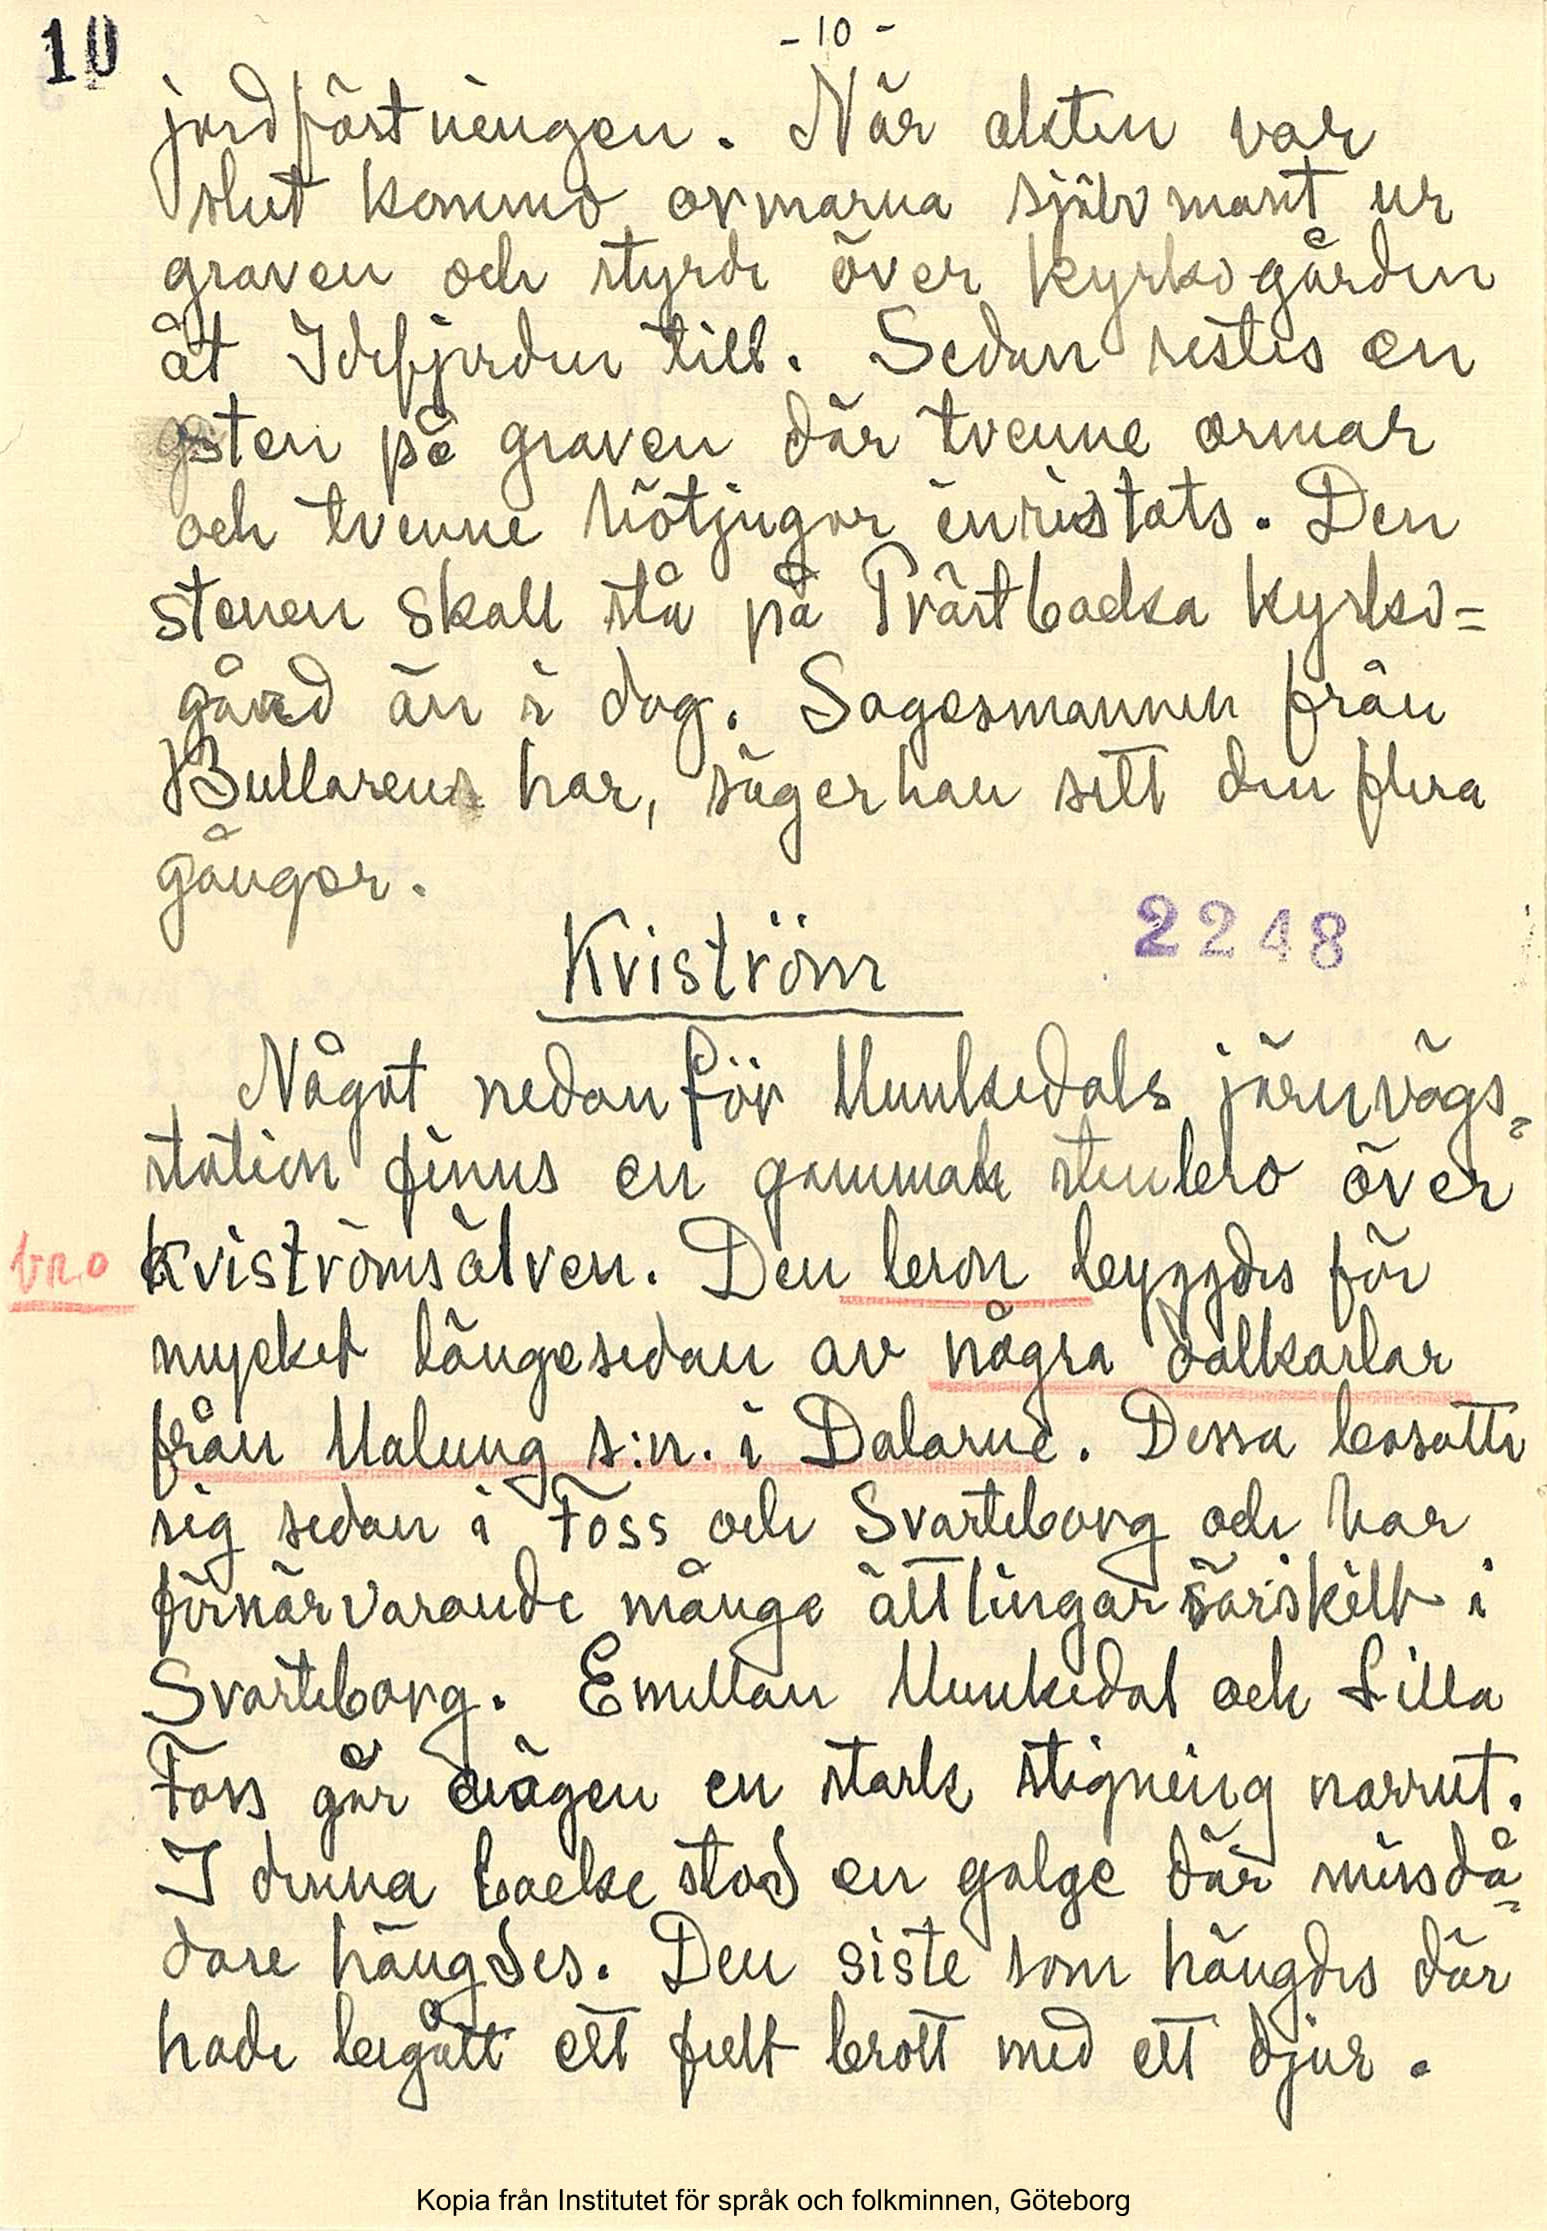 10
- 10 -
jordfästningen. När akten var
slut kommo ormarna självmant ur
graven och styrde över kyrkogården
åt Idefjorden till. Sedan restes en
sten på graven där tvenne ormar
och tvenne hötjugor inristats. Den
stenen skall stå på Prästbacka kyrko=
gård än i dag. Sagesmannen från
Bullaren har, säger han sett den flera
gånger.
Kviström
2248
Något nedanför Munkedals järnvägs=
station finns en gammal stenbro över
bro
Kviströmsälven. Den bron byggdes för
mycket längesedan av några dalkarlar
från Malung s:n. i Dalarne. Dessa bosatte
sig sedan i Foss och Svarteborg och har
förnärvarande många ättlingar särskilt i
Svarteborg. Emellan Munkedal och Lilla
Foss går vägen en stark stigning norrut.
I denna backe stod en galge där missdå=
dare hängdes. Den siste som hängdes där
hade begått ett fult brott med ett djur.
Kopia från Institutet för språk och folkminnen, Göteborg